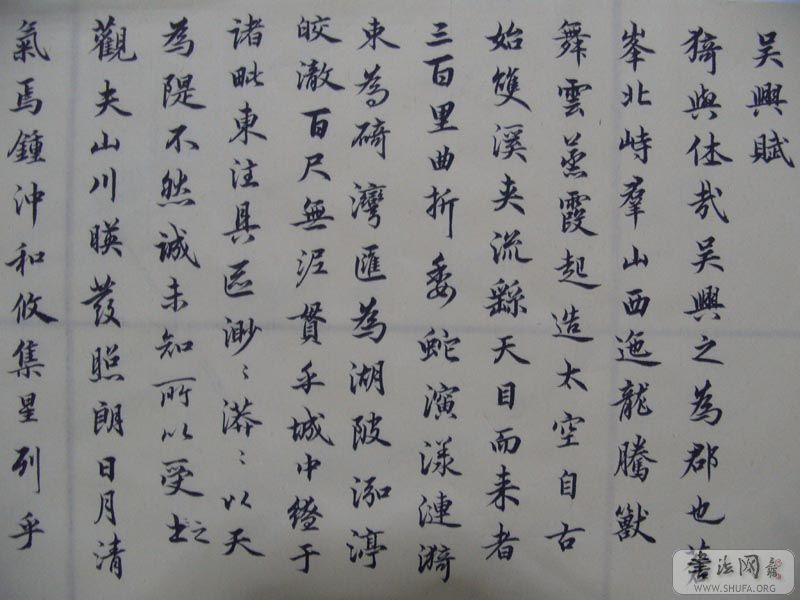 吳興賦
猗與休哉吳興之為郡也蒼
峯北峙羣山西迤龍騰獸
舞雲蒸霞起造太空自古
始雙溪夾流繇天目而来者
三百里曲折委蛇演漾漣漪
束為碕灣匯為湖陂泓渟
皎澈百尺無泥貫乎城中繚于
諸毗東注具區渺〻漭〻以天
為隄不然誠未知所以受之
觀夫山川暎發照朗日月清
氣焉鍾沖和攸集星列乎
書法网
WWW.SHUFA.ORG